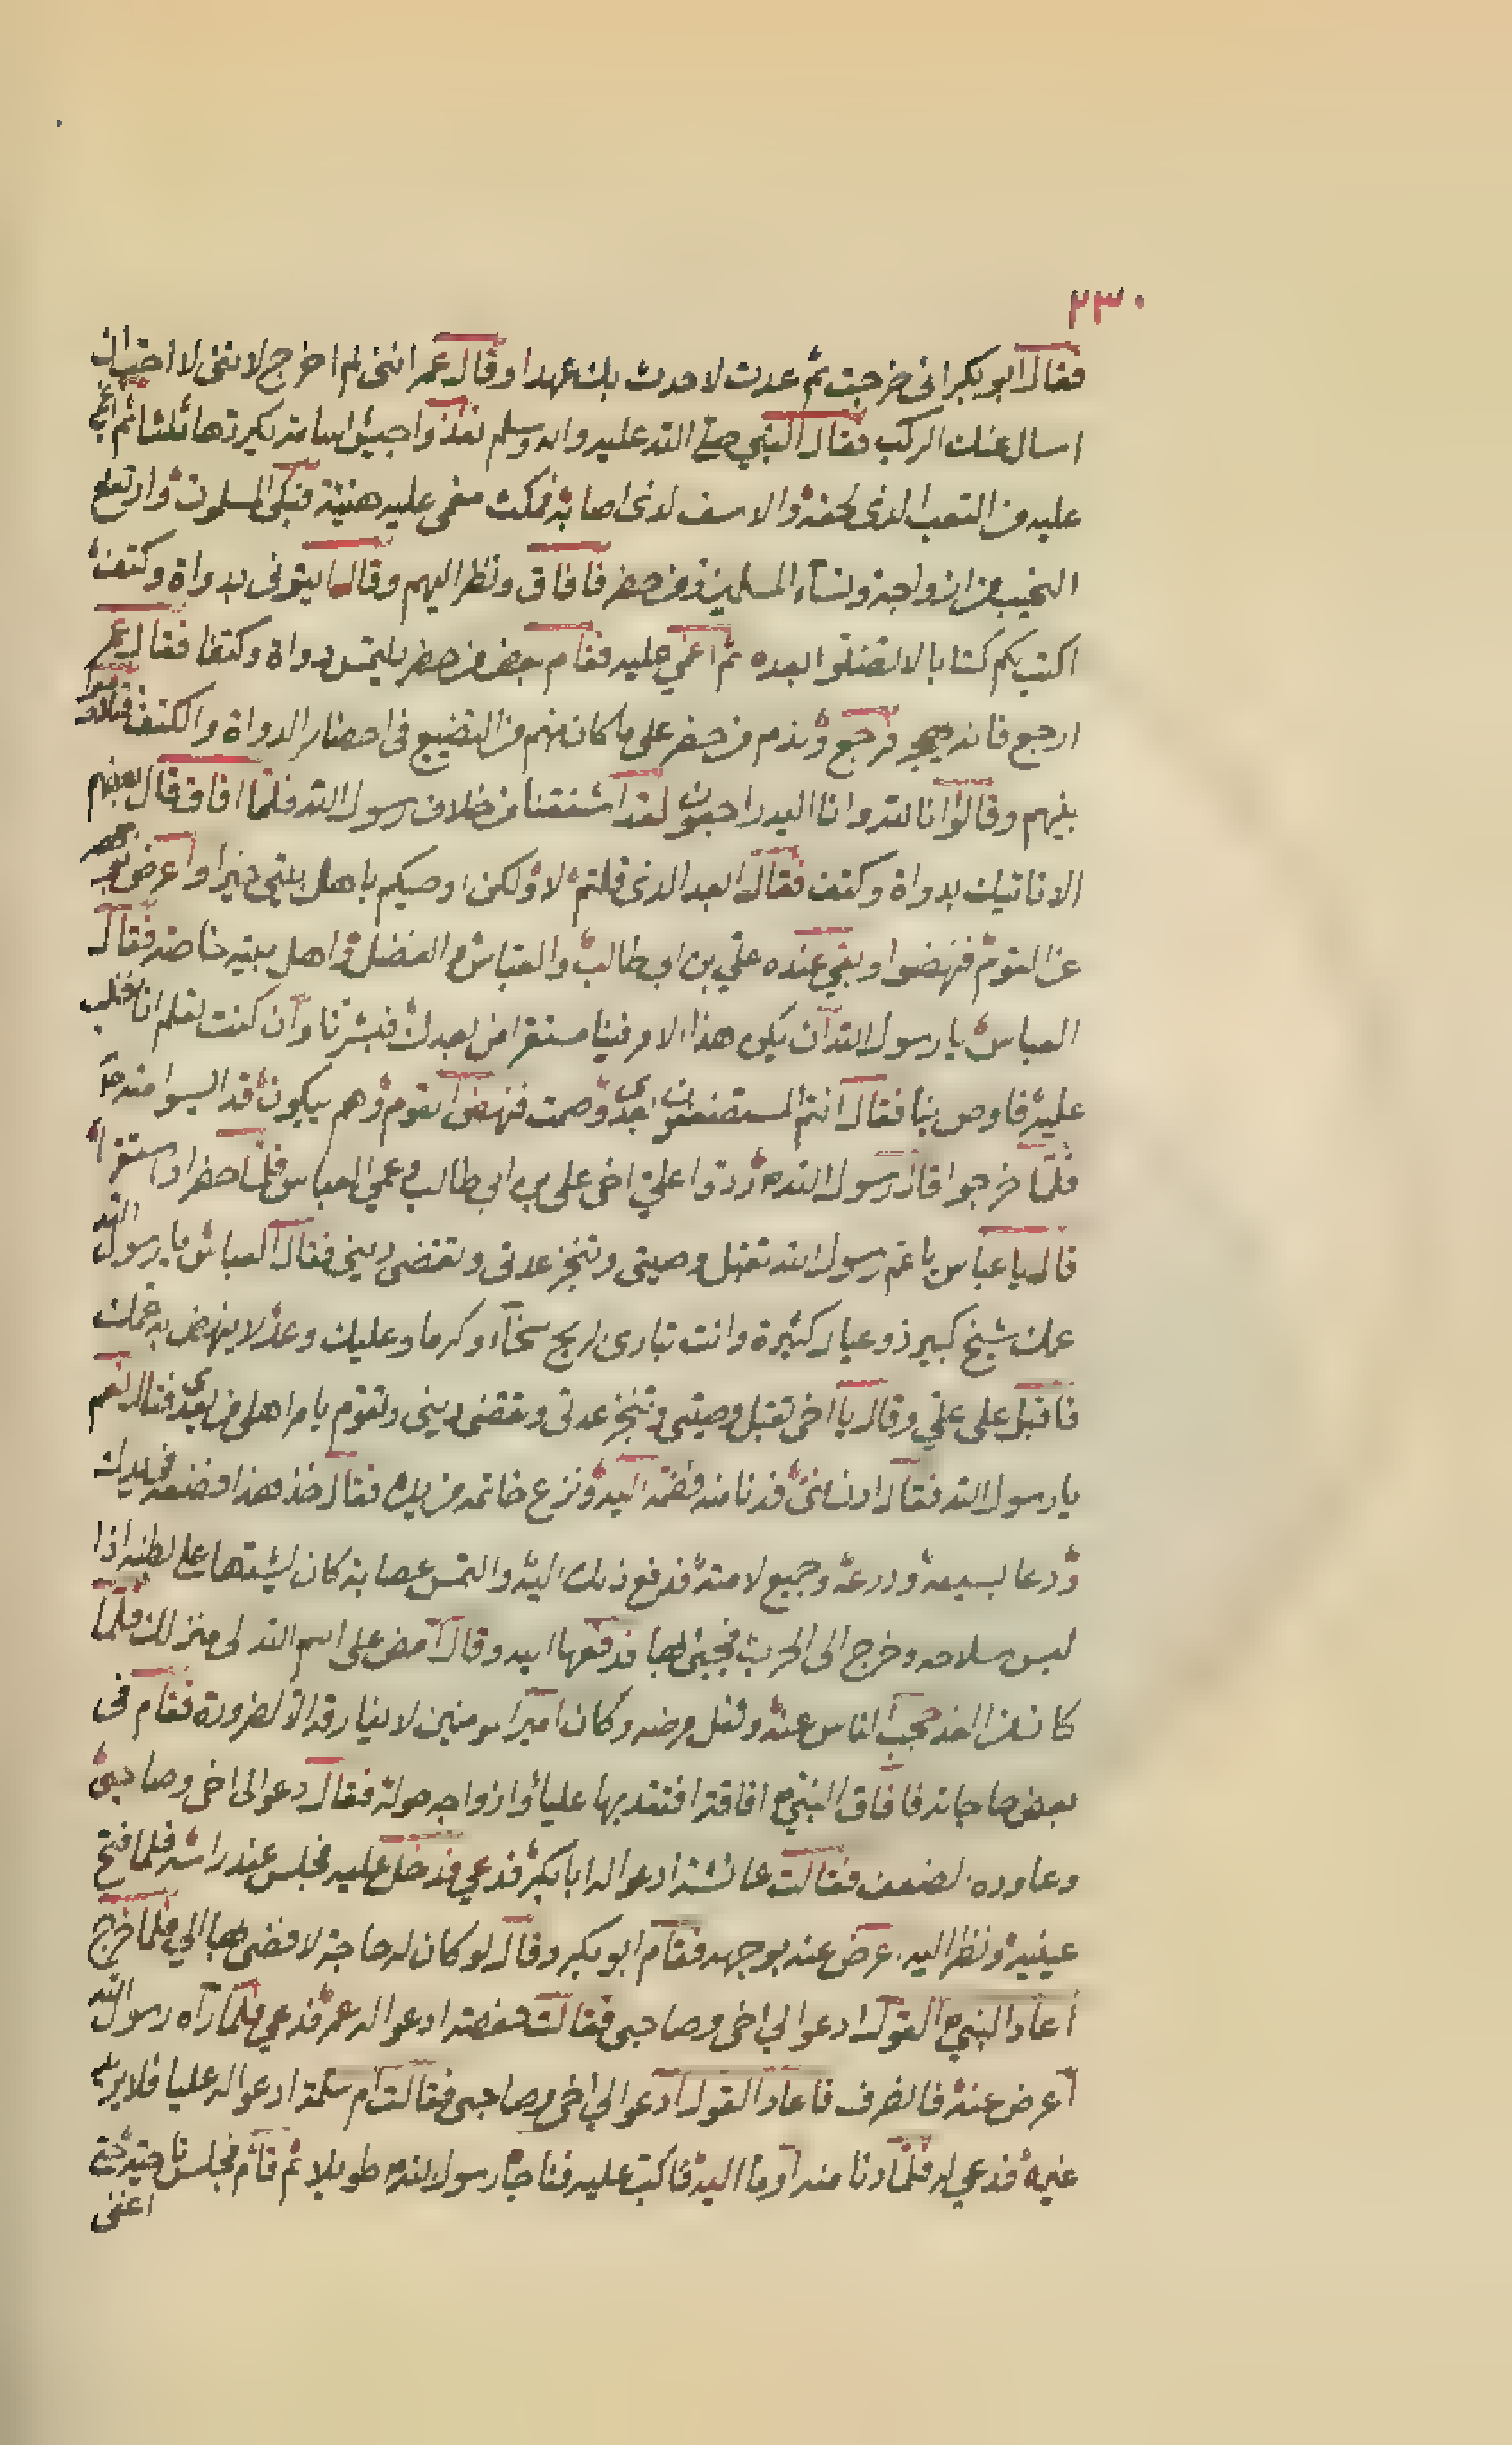 ٢٣٠
فقال ابو بكر انى خرجت ثم عدت لاحدث بك عهدا وقال عمر اننى لم اخرج لاننى لا احب ان
اسال عنك الركب فقال النبي صلى الله عليه واله وسلم نفذوا جيش اسامة يكررها ثلثا ثم اغمي
عليه من التعب الذى لحقه والاسف لذى اصابه فمكث مغمى عليه هنيئة فبكى المسلمون وارتفع
النحيب من ازواجه ونساء المسلمين ومن حضر فافاق ونظر اليهم وقال ايتونى بدواة وكتف
اكتب لكم كتابا لا تضلوا بعده ثم اغمي عليه فقام بعض من حضر يلتمس دواة وكتفا فقال عمر
ارجع فانه يهجر فرجع وندم من حضر على ما كان منهم من التضييع فى احضار الدواة والكتف فتلاوموا
بينهم وقالوا انا لله وانا اليه راجعون لقد اشفقنا من خلاف رسول الله فلما افاق قال بعضهم
الا ناتيك بدواة وكتف فقال ابعد الذى قلتم لا ولكن اوصيكم باهل بيتى خيرا واعرض بوجهه
عن القوم فنهضوا وبقي عنده علي بن ابى طالب والعباس والفضل واهل بيته خاصة فقال
العباس يا رسول الله ان يكن هذا الامر فينا مستقرا من بعدك فبشرنا وان كنت تعلم انا نغلب
عليه فاوص بنا فقال انتم المستضعفون بعدى وصمت فنهض القوم وهم يبكون قد ايسوا منه
فلما خرجوا قال رسول الله ردوا علي اخى على بن ابي طالب وعمي العباس فلما حضرا واستقرا
قال يا عباس يا عم رسول الله تقبل وصيتى وتنجز عدتى وتقضى دينى فقال العباس يا رسول الله
عمك شيخ كبير ذو عيال كثيرة وانت تبارى الريح سخاء وكرما وعليك وعد لا ينهض به عمك
فاقبل على علي وقال يا اخى تقبل وصيتى وتنجز عدتى وتقضى دينى وتقوم بامر اهلى من بعدى فقال نعم
يا رسول الله فقال ادن منى فدنا منه فضمه اليه ونزع خاتمه من يده فقال خذ هذا فضعه فى يدك
ودعا بسيفه ودرعه وجميع لامته فدفع ذلك اليه والتمس عصابة كان يشدها على بطنه اذا
لبس سلاحه وخرج الى الحرب فجيئ بها فدفعها اليه وقال امض على اسم الله الى منزلك فلما
كان من الغد حجب الناس عنه وثقل مرضه وكان امير المومنين لا يفارقه الا لضرورة فقام فى
بعض حاجاته فافاق النبي افاقة افتقد بها عليا وازواجه حوله فقال دعوا لى اخى وصاحبى
وعاوده الضعف فقالت عائشة ادعوا له ابا بكر فدعي فدخل عليه فجلس عند راسه فلما فتح
عينيه ونظر اليه اعرض عنه بوجهه فقام ابو بكر وقال لو كان له حاجة لافضى بها الي فلما خرج
أعاد النبي القول ادعوا لي اخى وصاحبى فقالت حفصة ادعوا له عمر فدعي فلما رآه رسول الله
أعرض عنه فانصرف فاعاد القول ادعوا لي اخى وصاحبى فقالت ام سلمة ادعوا له عليا فلا يريد
غيره فدعي له فلما دنا منه أوما اليه فاكب عليه فناجاه رسول الله طويلا ثم قام فجلس ناحية حتى
اغفى